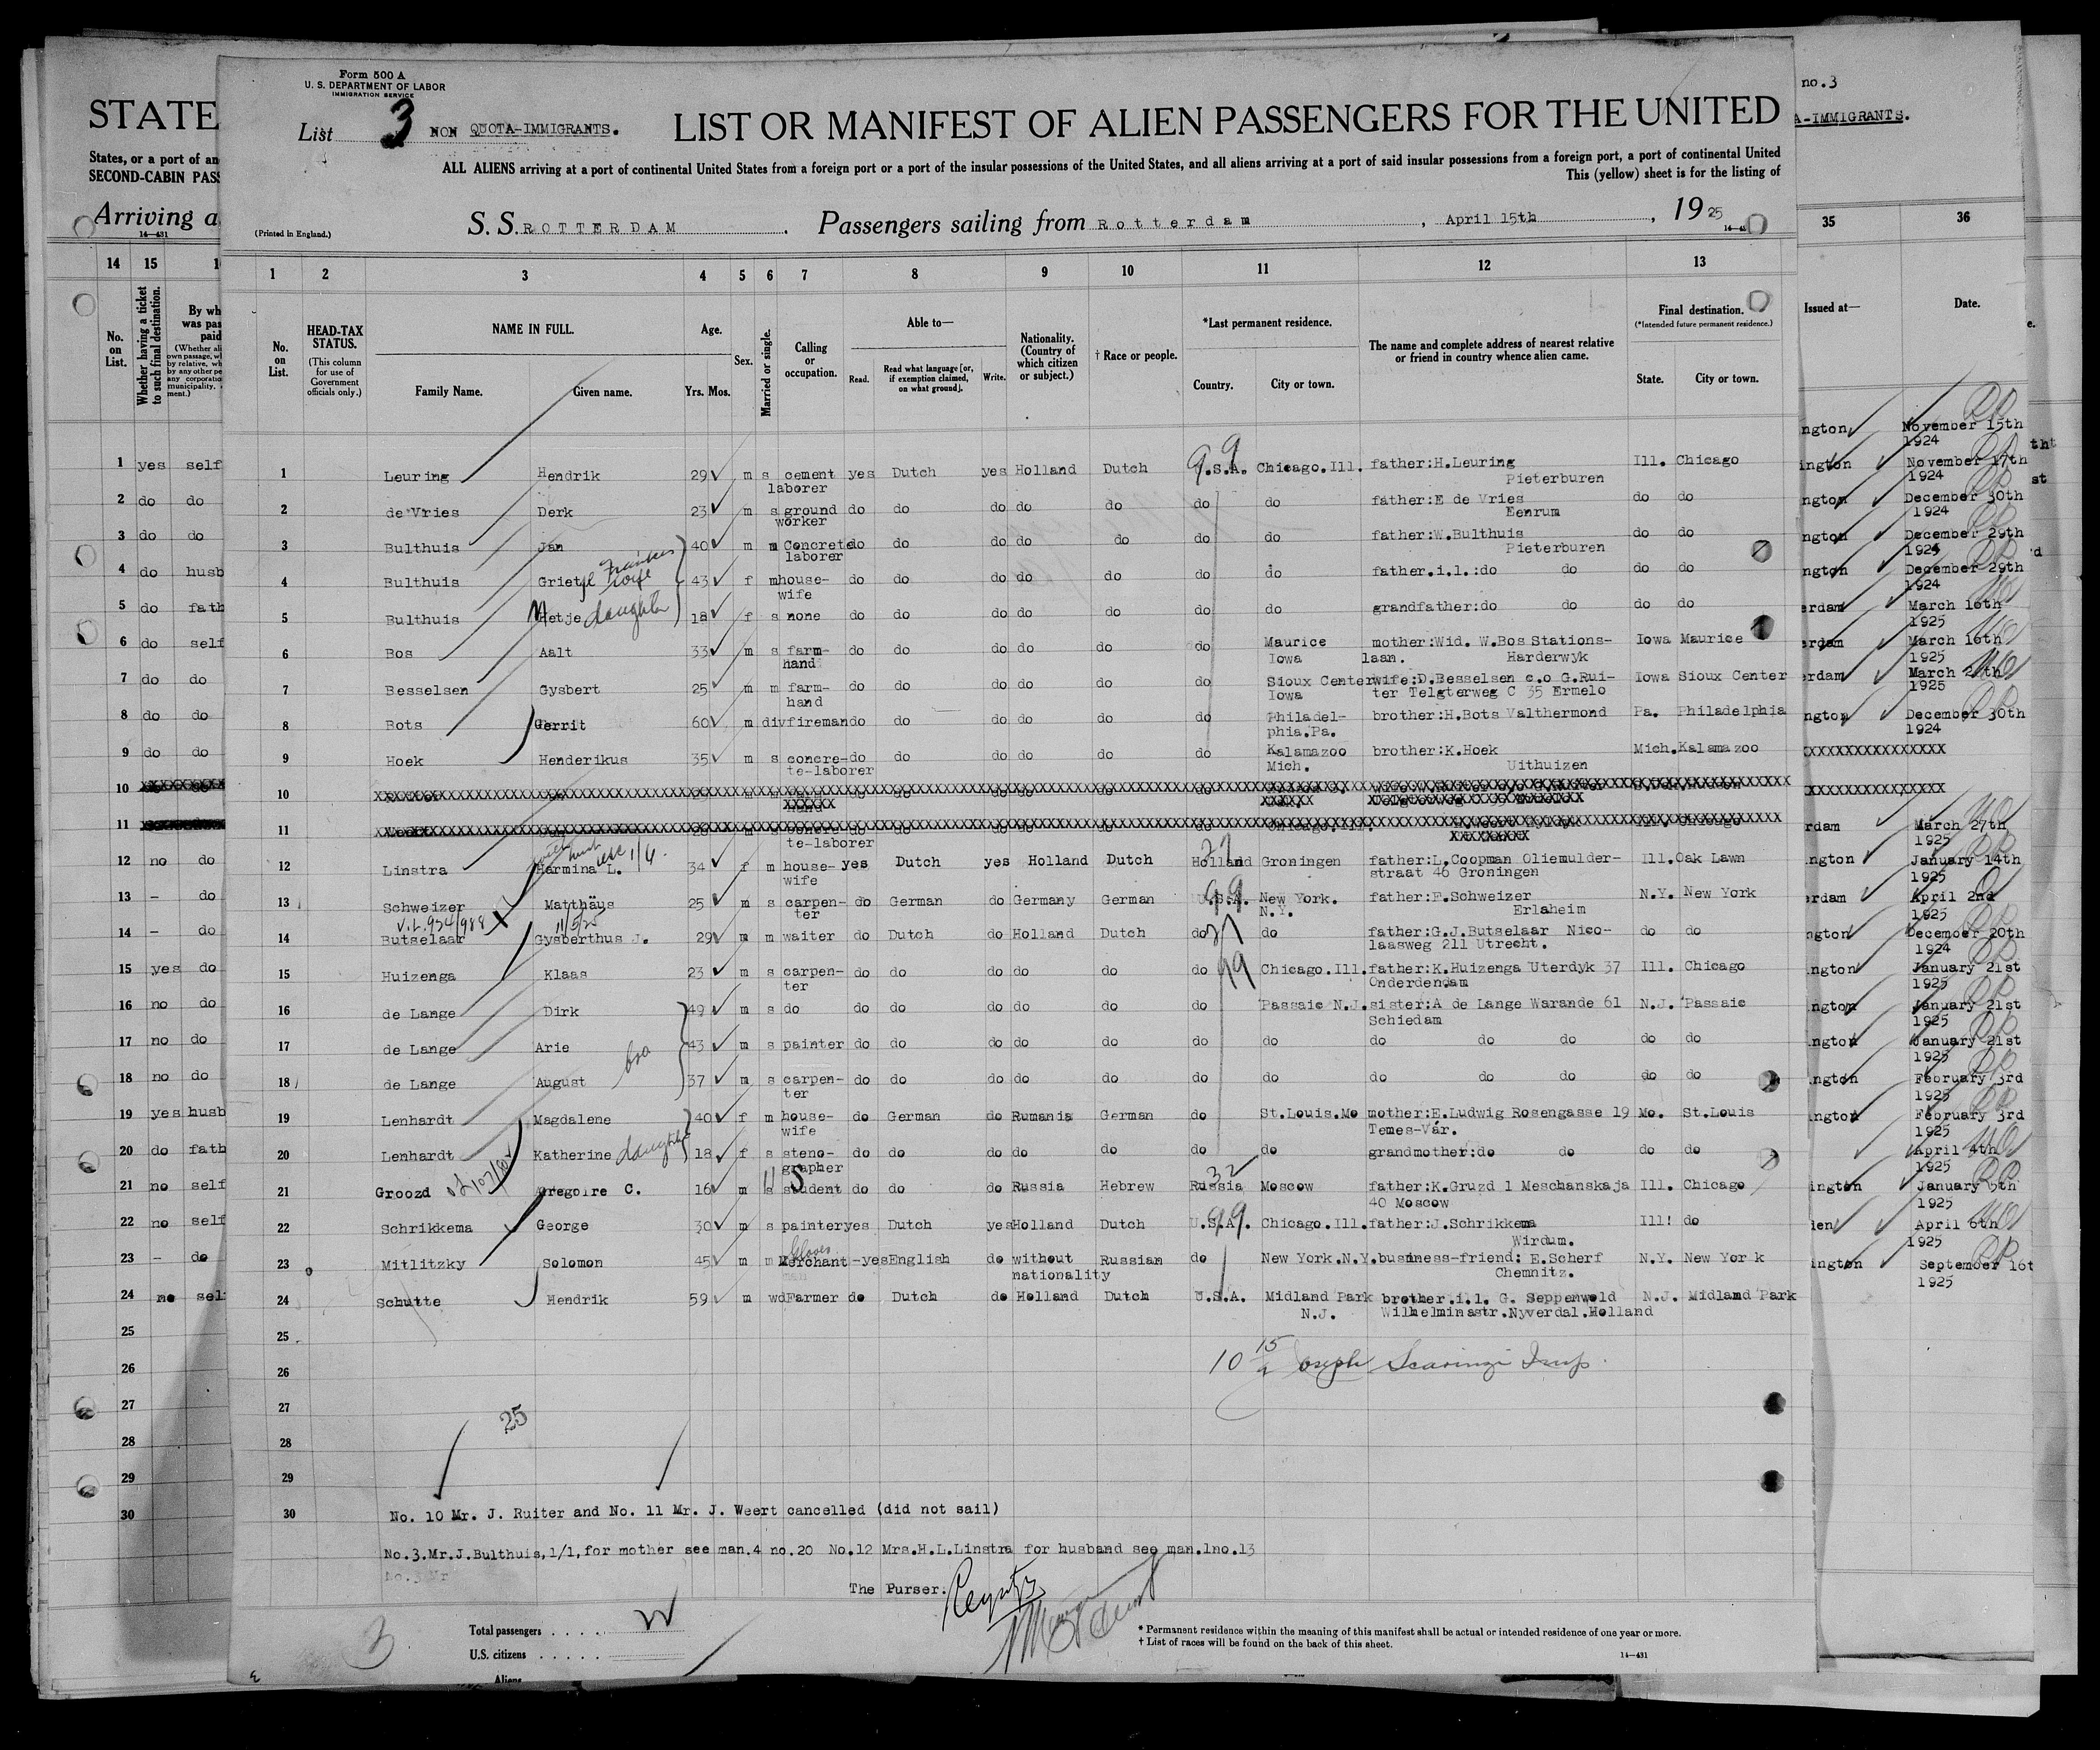 Form 500 A
U. S. DEPARTMENT OF LABOR
IMMIGRATION SERVICE
List 3 NON QUOTA-IMMIGRANTS.
LIST OR MANIFEST OF ALIEN PASSENGERS FOR THE UNITED
ALL ALIENS arriving at a port of continental United States from a foreign port or a port of the insular possessions of the United States, and all aliens arriving at a port of said insular possessions from a foreign port, a port of continental United
This (yellow) sheet is for the listing of
(Printed in England.)
S. S. ROTTERDAM . Passengers sailing from Rotterdam , April 15th , 1925
STATE
States, or a port of an
SECOND-CABIN PASS
Arriving a
14—431
no.3
A-IMMIGRANTS.
14 15 1
No. on List.
Whether having a ticket to such final destination.
By wh
was pas
paid
1 2 3 4 5 6 7 8 9 10 11 12 13
35 36
No. on List.
HEAD-TAX STATUS.
(This column for use of Government officials only.)
NAME IN FULL.
Family Name. Given name.
Age.
Yrs. Mos.
Sex.
Married or single.
Calling or occupation.
Able to—
Read. Read what language [or, if exemption claimed, on what ground]. Write.
Nationality. (Country of which citizen or subject.)
† Race or people.
*Last permanent residence.
Country. City or town.
The name and complete address of nearest relative or friend in country whence alien came.
Final destination.
(*Intended future permanent residence.)
State. City or town.
Issued at— Date.
1 yes self
1 Leuring Hendrik 29 m s cement laborer yes Dutch yes Holland Dutch U.S.A. Chicago.Ill. father:H.Leuring Pieterburen Ill. Chicago
ngton November 15th 1924
2 do do
2 de Vries Derk 23 m s ground worker do do do do do do do father:E de Vries Eenrum do do
ington November 17th 1924
3 do do
3 Bulthuis Jan 40 m m Concrete laborer do do do do do do do father:W.Bulthuis Pieterburen do do
ngton December 30th 1924
4 do husb
4 Bulthuis Grietje wife 43 f m house-wife do do do do do do do father.i.l.:do do do do
ngton December 29th 1924
5 do fath
5 Bulthuis Hetje daughter 18 f s none do do do do do do do grandfather:do do do do
ngton December 29th 1924
6 do self
6 Bos Aalt 33 m s farm-hand do do do do do do Maurice Iowa mother:Wid. W.Bos Stations-laan. Harderwyk Iowa Maurice
erdam March 16th 1925
7 do do
7 Besselsen Gysbert 25 m m farm-hand do do do do do do Sioux Center Iowa wife:D.Besselsen c.o G.Rui-ter Telgterweg C 35 Ermelo Iowa Sioux Center
erdam March 16th 1925
8 do do
8 Bots Gerrit 60 m div fireman do do do do do do Philadel-phia.Pa. brother:H.Bots Valthermond Pa. Philadelphia
erdam March 24th 1925
9 do do
9 Hoek Henderikus 35 m s concre-te-laborer do do do do do do Kalamazoo Mich. brother:K.Hoek Uithuizen Mich. Kalamazoo
ngton December 30th 1924
10
10
11
11
te-laborer
12 no do
12 Linstra Harmina L. 34 f m house-wife yes Dutch yes Holland Dutch Holland Groningen father:L.Coopman Oliemulder-straat 46 Groningen Ill. Oak Lawn
rdam March 27th 1925
13 - do
13 Schweizer Matthäus 25 m s carpen-ter do German do Germany German U.S.A. New York. N.Y. father:F.Schweizer Erlaheim N.Y. New York
ngton January 14th 1925
V.L.934/988 11/5/25
14 - do
14 Butselaar Gysberthus J. 29 m m waiter do Dutch do Holland Dutch do do father:G.J.Butselaar Nico-laasweg 211 Utrecht. do do
erdam April 2nd 1925
15 yes do
15 Huizenga Klaas 23 m s carpen-ter do do do do do do Chicago.Ill. father:K.Huizenga Uterdyk 37 Onderdendam Ill. Chicago
ngton December 20th 1924
16 no do
16 de Lange Dirk 49 m s do do do do do do do Passaic N.J. sister:A de Lange Warande 61 Schiedam N.J. Passaic
ington January 21st 1925
17 no do
17 de Lange Arie bro 43 m s painter do do do do do do do do do do do do
ington January 21st 1925
18 no do
18 de Lange August 37 m s carpen-ter do do do do do do do do do do do do
ngton January 21st 1925
19 yes husb
19 Lenhardt Magdalene 40 f m house-wife do German do Rumania German do St.Louis.Mo mother:E.Ludwig Rosengasse 19 Temes-Vár. Mo. St.Louis
ngton February 3rd 1925
20 do fath
20 Lenhardt Katherine daughter 18 f s steno-grapher do do do do do do do grandmother:do do do do
ngton February 3rd 1925
21 no self
21 Groozd Gregoire C. 16 m s student do do do Russia Hebrew Russia Moscow father:K.Gruzd 1 Meschanskaja 40 Moscow Ill. Chicago
April 4th 1925
22 no self
22 Schrikkema George 30 m s painter yes Dutch yes Holland Dutch U.S.A. Chicago.Ill. father:J.Schrikkema Wirdum. Ill. do
ington January 5th 1925
23 - do
23 Mitlitzky Solomon 45 m m Merchant Gloves -yes English do without nationality Russian do New York.N.Y. business-friend: E.Scherf Chemnitz. N.Y. New York
den April 6th 1925
24 no sel
24 Schutte Hendrik 59 m wd Farmer do Dutch do Holland Dutch U.S.A. Midland Park N.J. brother.i.l. G. Seppenwold Wilhelminastr.Nyverdal.Holland N.J. Midland Park
ington September 16t 1925
25 25
26 26
27 27
28 28
29 29
30 30
25
No. 10 Mr. J. Ruiter and No. 11 Mr. J. Weert cancelled (did not sail)
No.3.Mr.J.Bulthuis,1/1,for mother see man.4 no.20 No.12 Mrs.H.L.Linstra for husband see man.1no.13
The Purser:
3
Total passengers . . . . .
U.S. citizens . . . . .
Aliens
* Permanent residence within the meaning of this manifest shall be actual or intended residence of one year or more.
† List of races will be found on the back of this sheet.
14—431